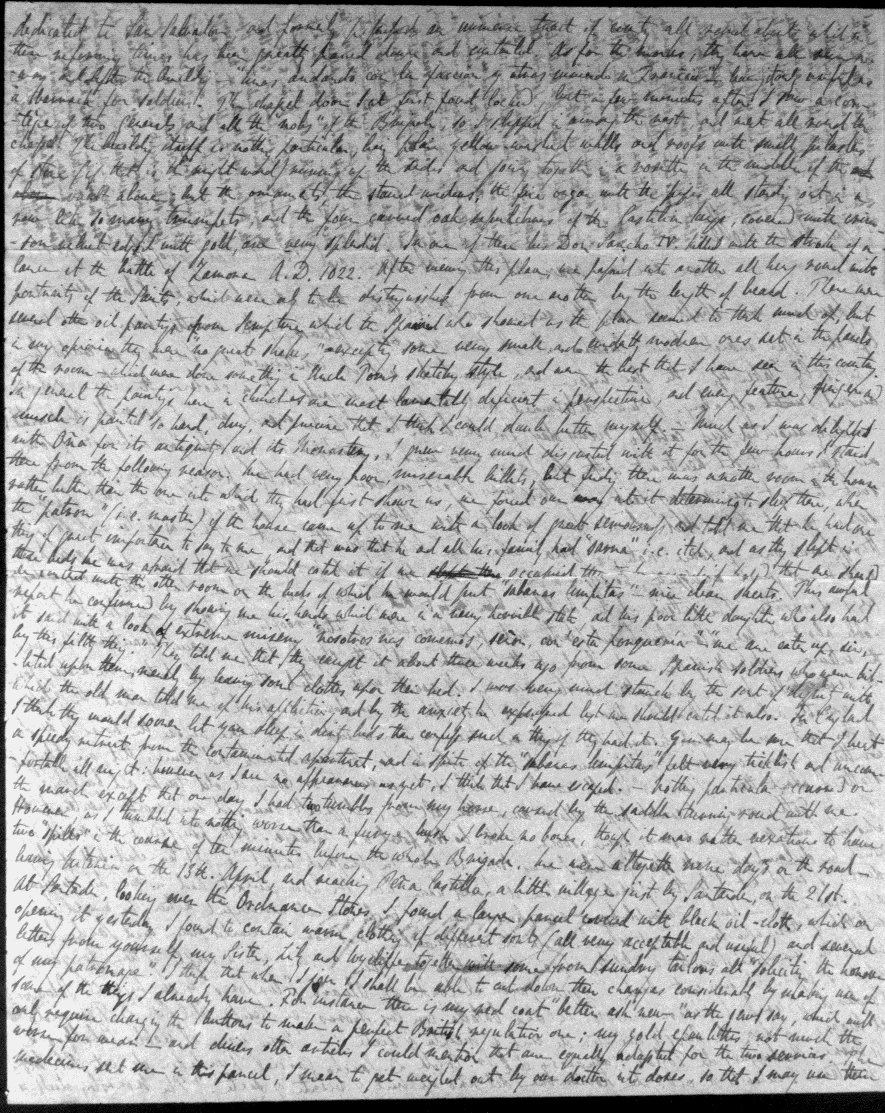 dedicated to San Salvador and formerly possessed an immense tract of country all round about which in
these reforming times has been greatly pared down and curtailed. As for the monks, they have all run a-
-way and left the building
a "Barrack" for soldiers. The chapel door I at first found locked, but a few minutes after I saw a cor-
-tège of two Generals and all the "nobs" of the Brigade, so I slipped in among the rest, and went all round the
chapel. The building itself is nothing particular, having plain yellow-washed walls and roofs with small pilasters
of stone (if that is the right word) running up the sides and going together in a rosette in the middle of the
vault above; but the ornaments, the stained windows, the fine organ with the pipes all standing out in a
row like so many trumpets, and the four carved oak sepulchres of the Castilian kings covered with crim-
-son velvet edged with gold, are very splendid. In one of these lies Don Sancho IV killed with the stroke of a
lance at the battle of Zamora A.D. 1022. After viewing this place, we passed into another all hung round with
portraits of the Saints, which were only to be distinguished from one another by the length of beard. There were
several other oil paintings from Scripture which the Spaniard who showed us the place seemed to think much of, but
in my opinion they were "no great shakes," excepting some very small, and evidently modern ones set in the panels
of the room – which were done something in Uncle Tom's sketchy style, and were the best that I have seen in this country.
In general the paintings here in churches are most lamentably deficient in perspective, and every feature, finger and
muscle is painted so hard, dry, and precise that I think I could daub better myself. – Much as I was delighted
with Oña for its antiquity and its Monastery, I grew very much disgusted with it for the few hours I staid
there from the following reason: we had very poor, miserable billets, but finding there was another room in the house
rather better than the one into which they had first shown us, we forced our way into it determining to sleep there, when
the "patron" (i.e. master) of the house came up to me with a look of great seriousness, and told me that he had one
thing of great importance to say to me, and that was that he and all his family had "sarna" i.e. itch, and as they slept in
those beds he was afraid that we should catch it if we occupied them that we should
be content with the other room on the beds of which he would put "sabanas limpitas" – nice clean sheets. This awful
report he confirmed by showing me his hands which were in a very horrible state, and his poor little daughter who also had
it said with a look of extreme misery "nosotros nos comemos, señor, con esta porqueria" "we are eaten up, sir,
by this filthy thing". They told me that they caught it about three weeks ago from some Spanish soldiers who were bil-
-leted upon them, merely by leaving some clothes upon their bed. I was very much struck by the sort of with
which the old man told me of his affliction, and by the anxiety he expressed lest we should catch it also. In England
I think they would sooner let you sleep in dirty beds than confess such a thing if they had it. You may be sure that I beat
a speedy retreat from the contaminated apartment, and in spite of the "sabanas limpitas" felt very ticklish and uncom-
-fortable all night; however as I see no appearances as yet, I think that I have escaped. – Nothing particular occurred on
the march except that one day I had two tumbles from my horse, caused by the saddle turning round with me.
However as I tumbled into nothing worse than a furze bush I broke no bones, though it was rather vexatious to have
two spills in the course of ten minutes before the whole Brigade. We were altogether nine days on the road –
leaving Vitoria on the 13th. April, and reaching Peña Castillo, a little village just by Santander, on the 21st.
At Santander, looking over the Ordnance Stores, I found a large parcel covered with black oil-cloth, which on
opening it yesterday I found to contain warm clothing of different sorts (all very acceptable and useful) and several
letters from yourself, my Sister, Lily and from sundry tailors all "soliciting the honour
of my patronage". I think that when I join I shall be able to cut down their charges considerably by making use of
some of the things I already have. For instance there is my red coat "better ash new" as the jews say, which will
only require changing the buttons to make a perfect British regulation one; my gold epaulettes not much the
worse for wear – and divers other articles I could mention that are equally adapted for the two services. The
medicines sent me in this parcel, I mean to get weighed out by our doctor into doses, so that I may use them